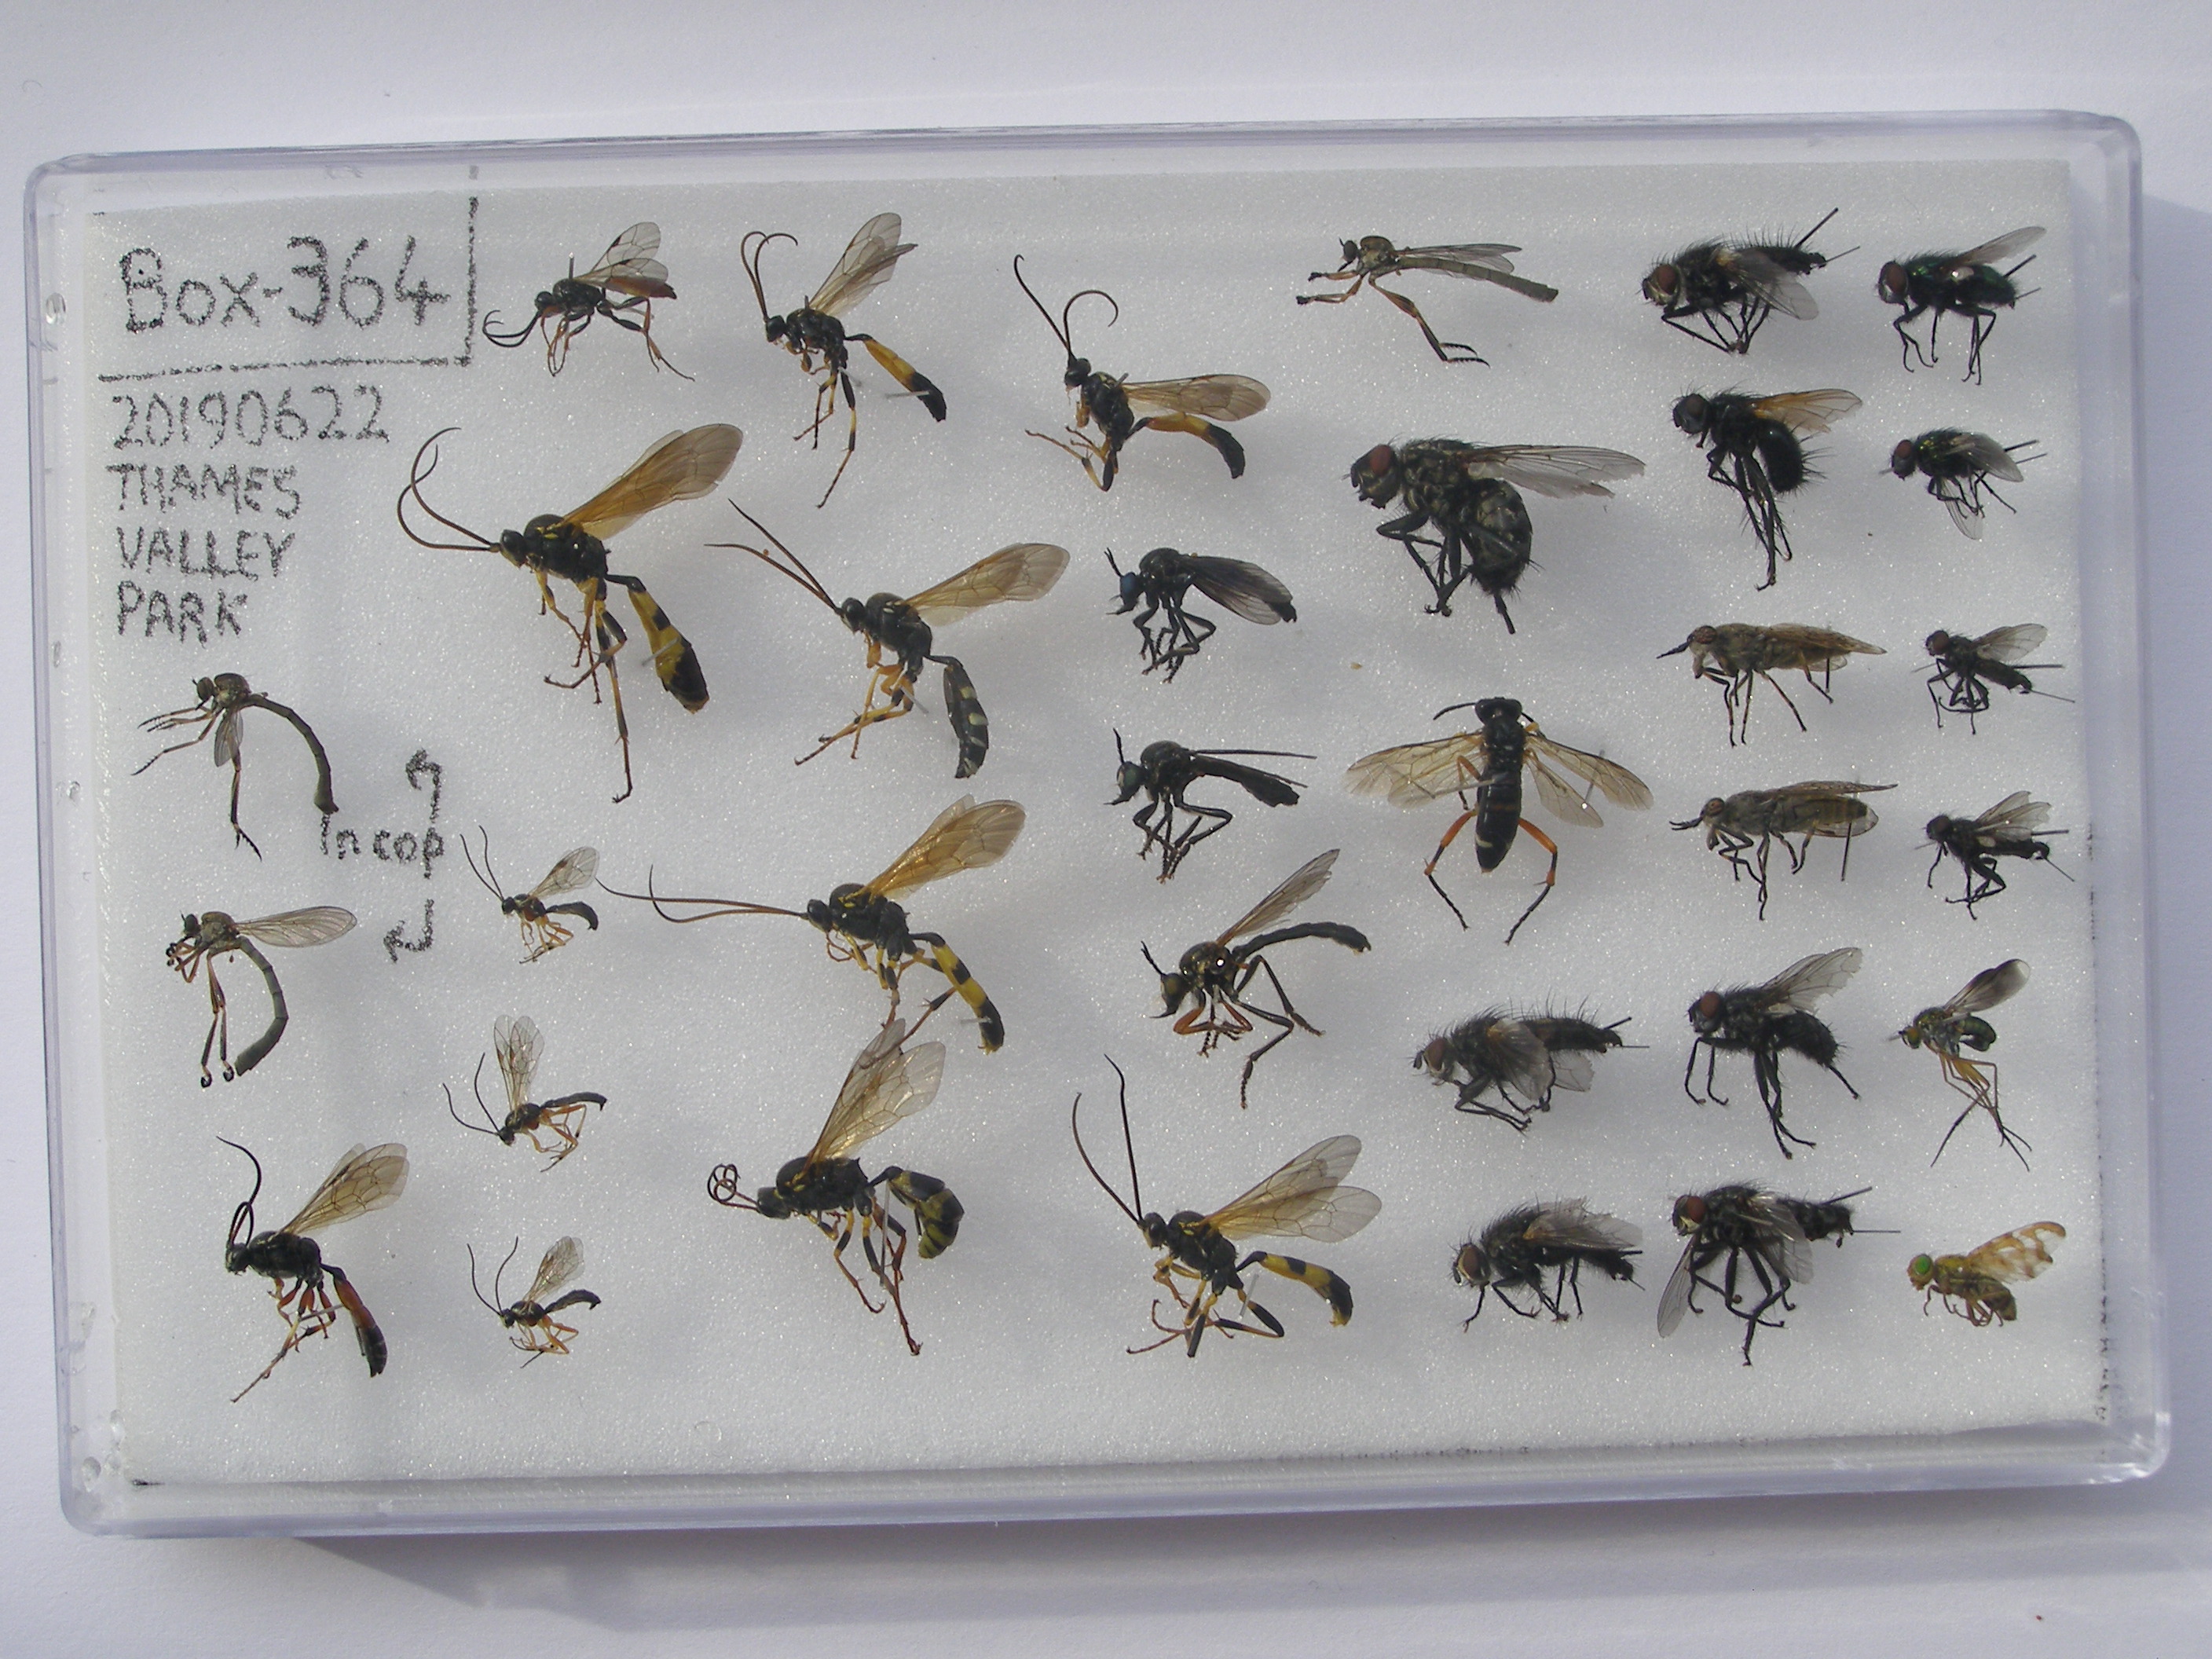 Box-364
20190622
THAMES
VALLEY
PARK
In cop